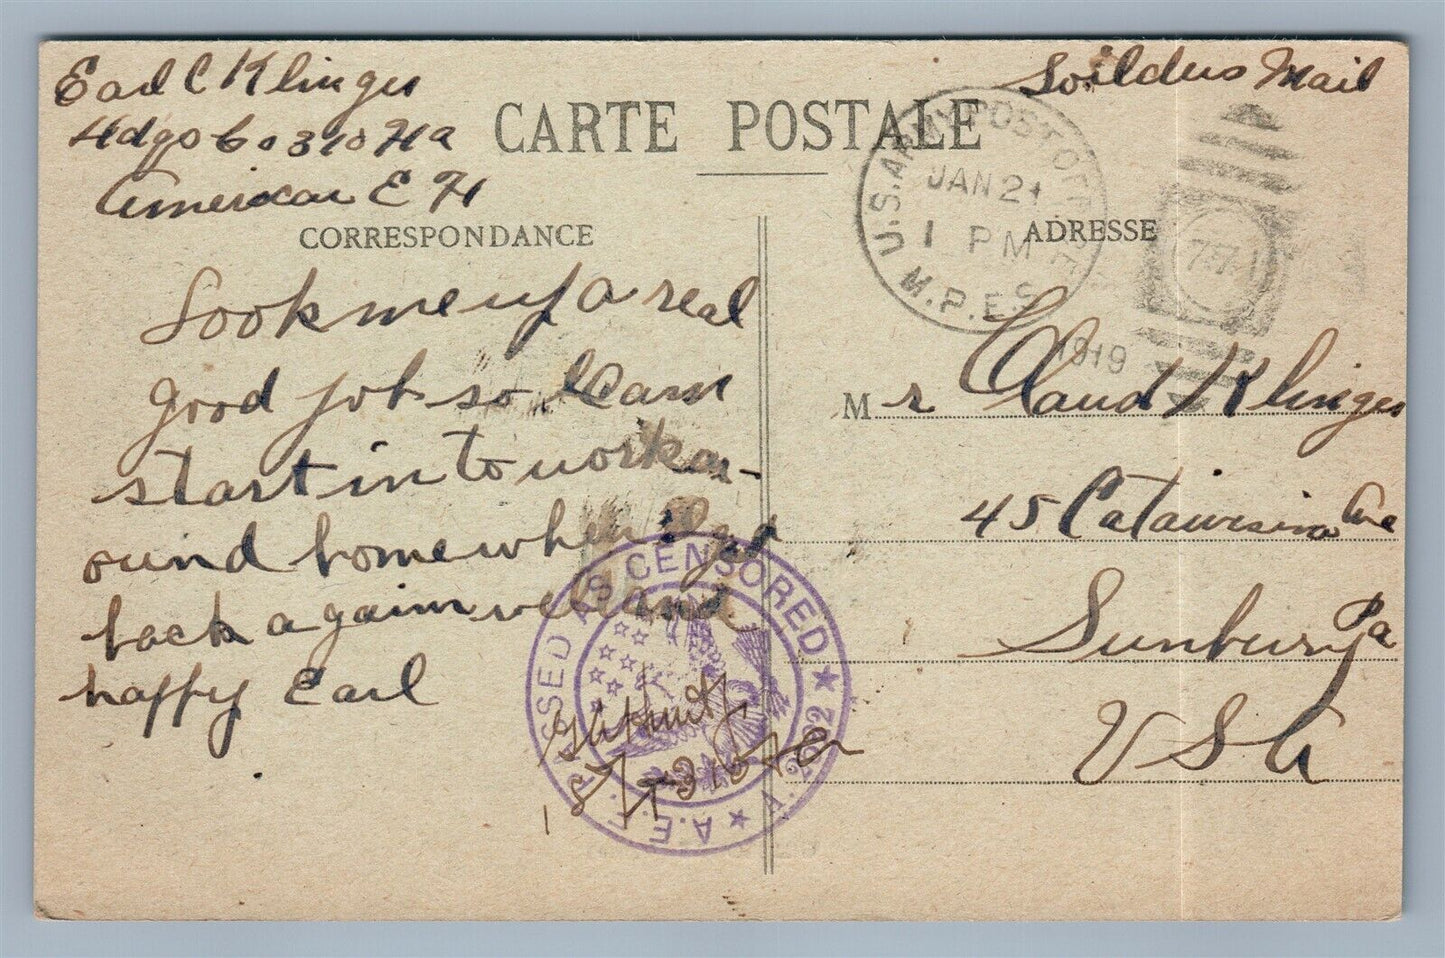 Earl C Klinger
Hdqs Co 310 HA
American E F
Soilders Mail
CARTE POSTALE
U.S. ARMY POST OFFICE
JAN 21
1 PM
M.P.E.S.
1919
CORRESPONDANCE
ADRESSE
Look me up a real
good job so I can
start in to work ar-
ound home when I get
back again well and
happy Earl
Mr Claud Klinger
45 Catawissa Ave
Sunbury Pa
USA
A.E.F. PASSED AS CENSORED